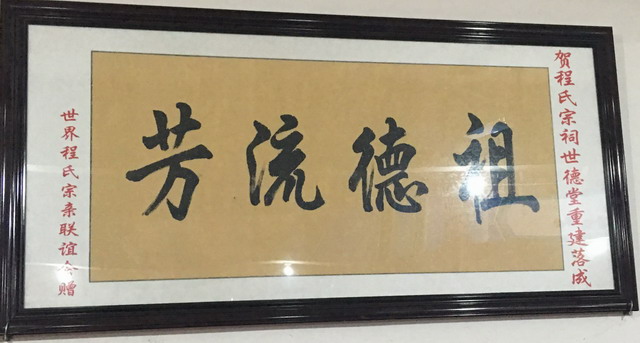 贺程氏宗祠世德堂重建落成
祖德流芳
世界程氏宗亲联谊会赠